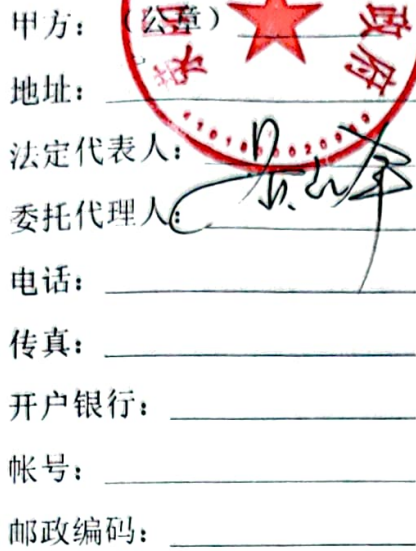 甲方：（公章）
政府
地址：
法定代表人：
委托代理人：
电话：
传真：
开户银行：
帐号：
邮政编码：